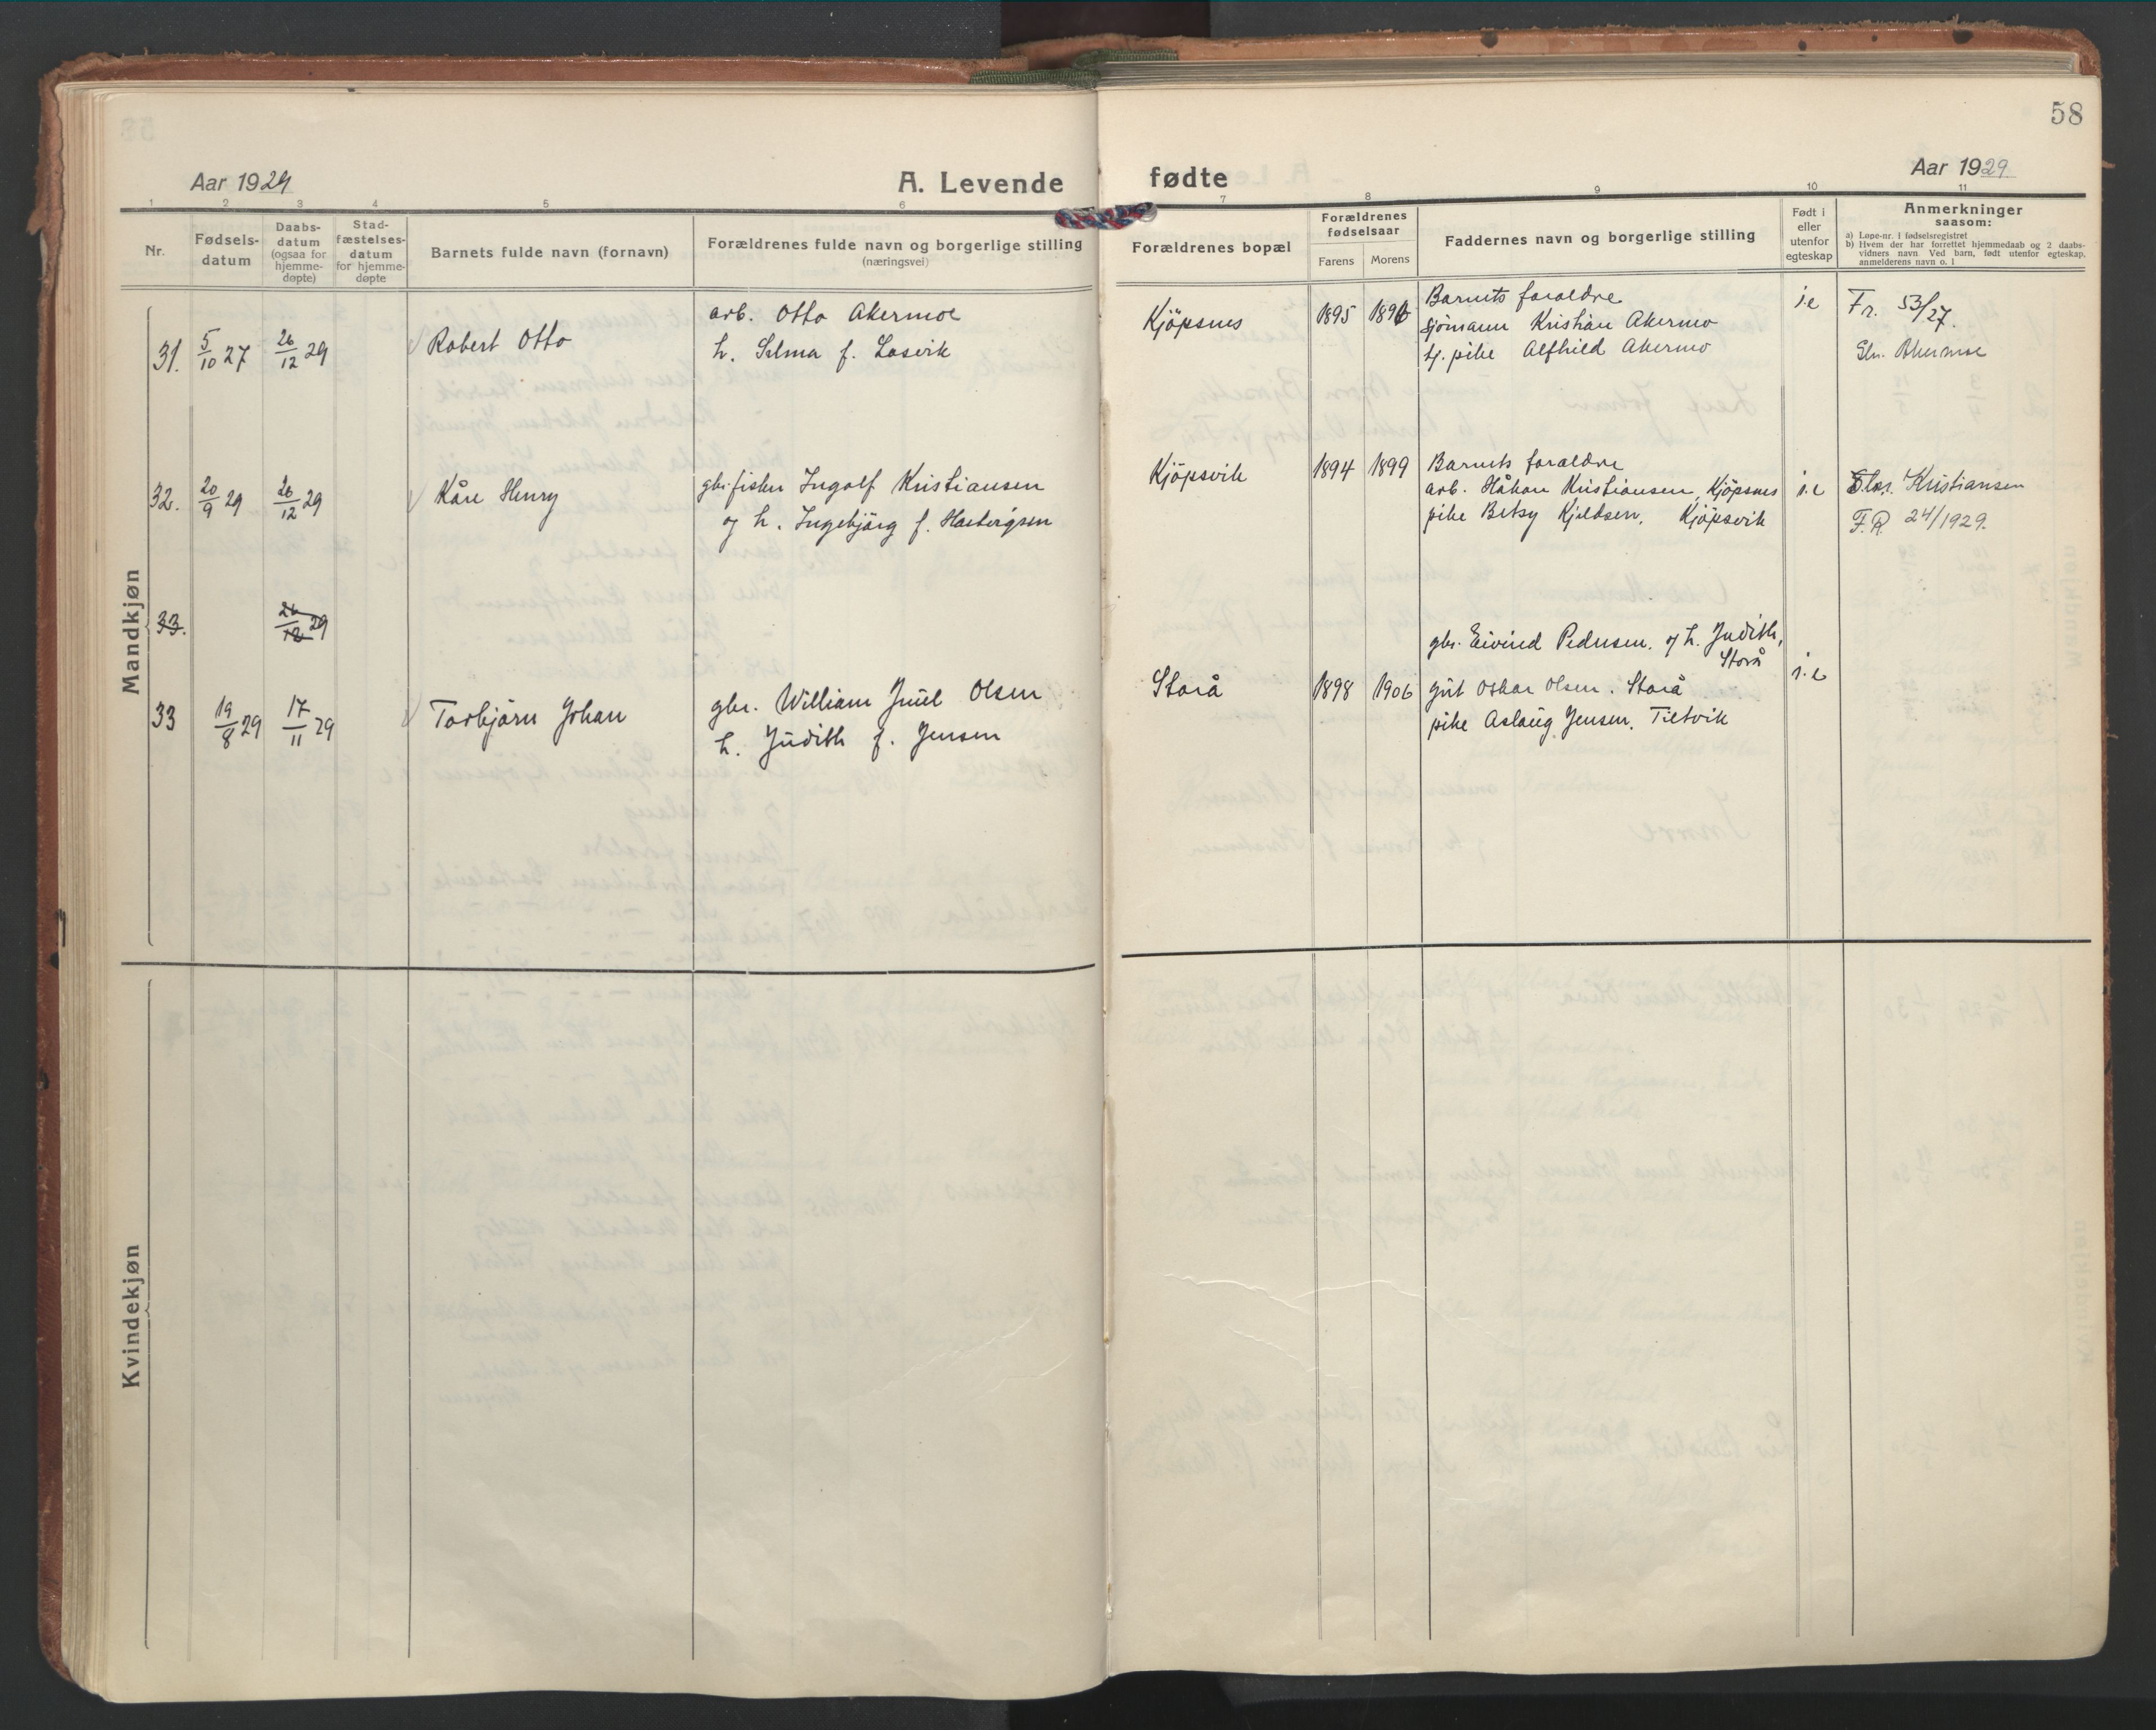 58
Aar 1929
A. Levende
fødte
Aar 1929.
1 2 3 4 5 6 7 8 9 10 11
Nr.
Fødsels-
datum
Daabs-
datum
(ogsaa for
hjemme-
døpte)
Stad-
fæstelses-
datum
for hjemme-
døpte
Barnets fulde navn (fornavn)
Forældrenes fulde navn og borgerlige stilling
(næringsvei)
Forældrenes bopæl
Forældrenes
fødselsaar
Farens Morens
Faddernes navn og borgerlige stilling
Født i
eller
utenfor
egteskap
Anmerkninger
saasom:
a) Løpe-nr. i fødselsregistret
b) Hvem der har forrettet hjemmedaab og 2 daabs-
vidners navn. Ved barn, født utenfor egteskap,
anmelderens navn o. l
Mandkjøn
31. 5/10 27 26/12 29 Robert Otto
arb. Otto Akermoe
h. Selma f. Losvik
Kjöpsnes 1895 1896
Barnets foraldre
sjömann Kristian Akermo
tj. pike Alfhild Akermo
i.e
Fr. 53/27.
Sln. Akermoe
32. 20/9 29 26/12 29 Kåre Henry
gbr. fisker Ingolf Kristiansen
og h. Ingebjörg f. Hartvigsen
Kjöpsvik 1894 1899
Barnets foraldre
arb. Håkon Kristiansen, Kjöpsnes
pike Betsy Kjeldsen, Kjöpsvik
i.e
Kristiansen
F.R. 24/1929.
33. 26/12 29
33 19/8 29 17/11 29 Torbjörn Johan
gbr. William Juul Olsen
h. Judith f. Jensen
Storå 1898 1906
gbr. Eivind Pedersen. og h. Judith,
Storå
gut Oskar Olsen. Storå
pike Aslaug Jensen. Tiltvik
i.e
Kvindekjøn